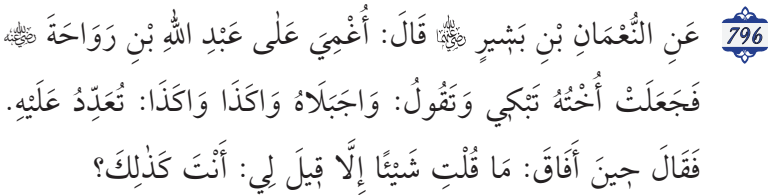 796 عَنِ النُّعْمَانِ بْنِ بَشِيرٍ رضي الله عنهما قَالَ: أُغْمِيَ عَلٰى عَبْدِ اللّٰهِ بْنِ رَوَاحَةَ رضي الله عنه
فَجَعَلَتْ أُخْتُهُ تَبْكِي وَتَقُولُ: وَاجَبَلَاهُ وَاكَذَا وَاكَذَا: تُعَدِّدُ عَلَيْهِ.
فَقَالَ حِينَ أَفَاقَ: مَا قُلْتِ شَيْئًا إِلَّا قِيلَ لِي: أَنْتَ كَذٰلِكَ؟